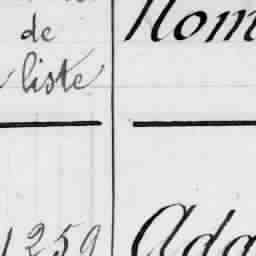 de
liste
Nom
1259
Ada